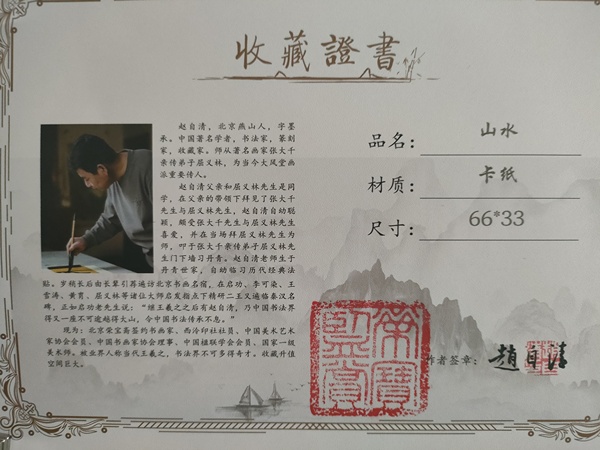 收藏證書
赵自清，北京燕山人，字墨
承。中国著名学者，书法家，篆刻
家，收藏家。师从著名画家张大千
亲传弟子屈义林，为当今大风堂画
派重要传人。
赵自清父亲和屈义林先生是同
学，在父亲的带领下拜见了张大千
先生与屈义林先生，赵自清自幼聪
颖，颇受张大千先生与屈义林先生
喜爱，并在当场拜屈义林先生为
师，叩于张大千亲传弟子屈义林先
生门下墙习丹青。赵自清老师生于
丹青世家，自幼临习历代经典法
帖。岁稍长后由长辈引荐遍访北京书画名宿，在启功、李可染、王
雪涛、黄胄、屈义林等诸位大师启发指点下精研二王又遍临秦汉名
碑，正如启功老先生说：“继王羲之之后有赵自清，乃中国书法界
得又一座不可逾越得大山，令中国书法传承不息。”
现为：北京荣宝斋签约书画家、西泠印社社员、中国美术艺术
家协会会员、中国书画家协会理事、中国楹联学会会员、国家一级
美术师。被业界人称当代王羲之，书法界不可多得奇才。收藏升值
空间巨大。
品名：山水
材质：卡纸
尺寸：66*33
作者签章：趙自清